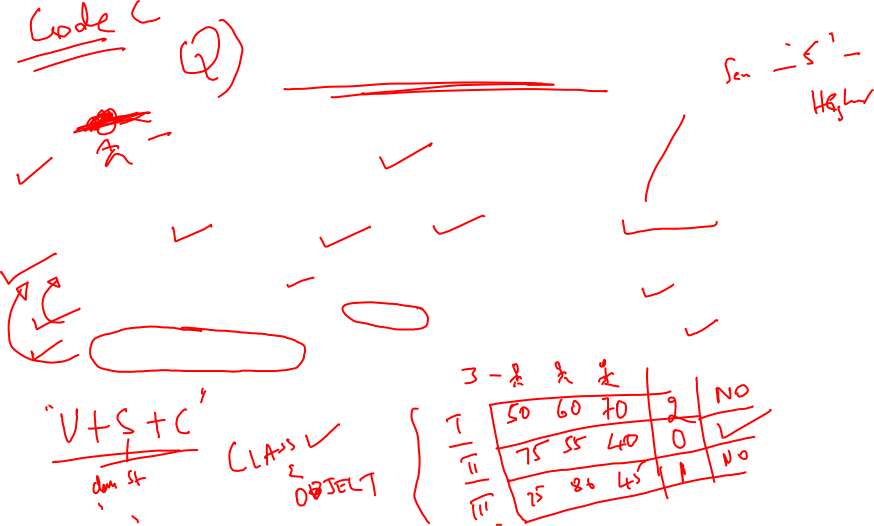 Code C
Q)
Sem - 5 -
Higher
"V+S+C"
CLASS
&
OBJECT
3 -
I 50 60 70 2 NO
II 75 55 40 0
III 75 86 45 1 NO